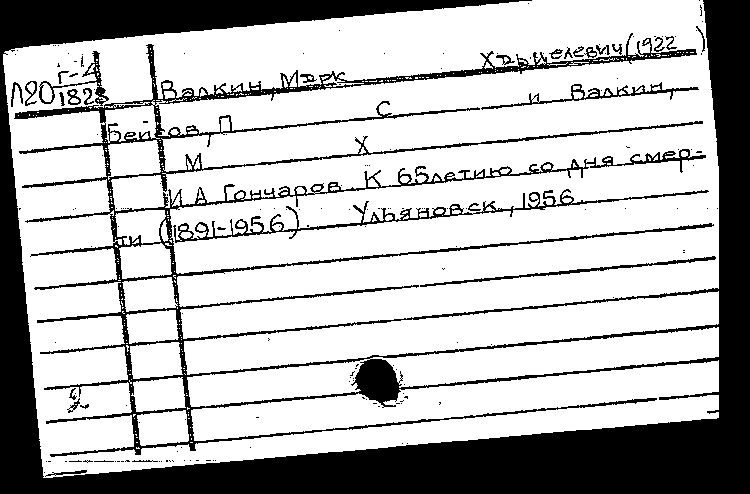 Г-4
Л20 1823 Валкин, Марк Харцелевич (1922 )
Бейсов, П С и Валкин,
М Х
И А Гончаров К 65летию со дня смер-
ти (1891-1956) Ульяновск, 1956
2